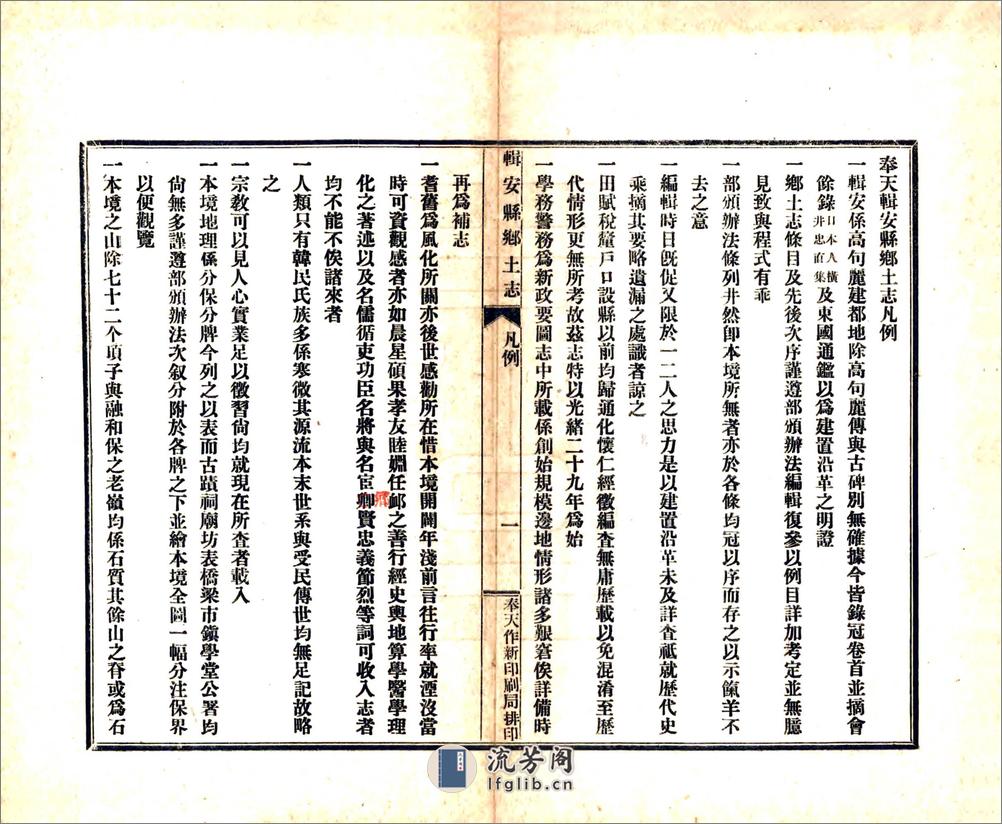 奉天輯安縣鄉土志凡例
一輯安係高句麗建都地除高句麗傳與古碑別無確據今皆錄冠卷首並摘會
餘錄日本人橫井忠直集及東國通鑑以爲建置沿革之明證
一鄉土志條目及先後次序謹遵部頒辦法編輯復參以例目詳加考定並無臆
見致與程式有乖
一部頒辦法條列井然卽本境所無者亦於各條均冠以序而存之以示餼羊不
去之意
一編輯時日旣促又限於一二人之思力是以建置沿革未及詳查祗就歷代史
乘摘其要略遺漏之處識者諒之
一田賦稅釐戶口設縣以前均歸通化懷仁經徵編查無庸歷載以免混淆至歷
代情形更無所考故茲志特以光緒二十九年爲始
一學務警務爲新政要圖志中所載係創始規模邊地情形諸多艱窘俟詳備時
輯安縣鄉土志
凡例
一
奉天作新印刷局排印
再爲補志
一耆舊爲風化所關亦後世感勸所在惜本境開闢年淺前言往行率就湮沒當
時可資觀感者亦如晨星碩果孝友睦婣任䘏之善行經史輿地算學醫學理
化之著述以及名儒循吏功臣名將與名宦鄉賢忠義節烈等詞可收入志者
均不能不俟諸來者
一人類只有韓民氏族多係寒微其源流本末世系與受民傳世均無足記故略
之
一宗敎可以見人心實業足以徵習尙均就現在所查者載入
一本境地理係分保分牌今列之以表而古蹟祠廟坊表橋梁市鎭學堂公署均
尙無多謹遵部頒辦法次叙分附於各牌之下並繪本境全圖一幅分注保界
以便觀覽
一本境之山除七十二个頂子與融和保之老嶺均係石質其餘山之脊或爲石
流芳閣
lfglib.cn